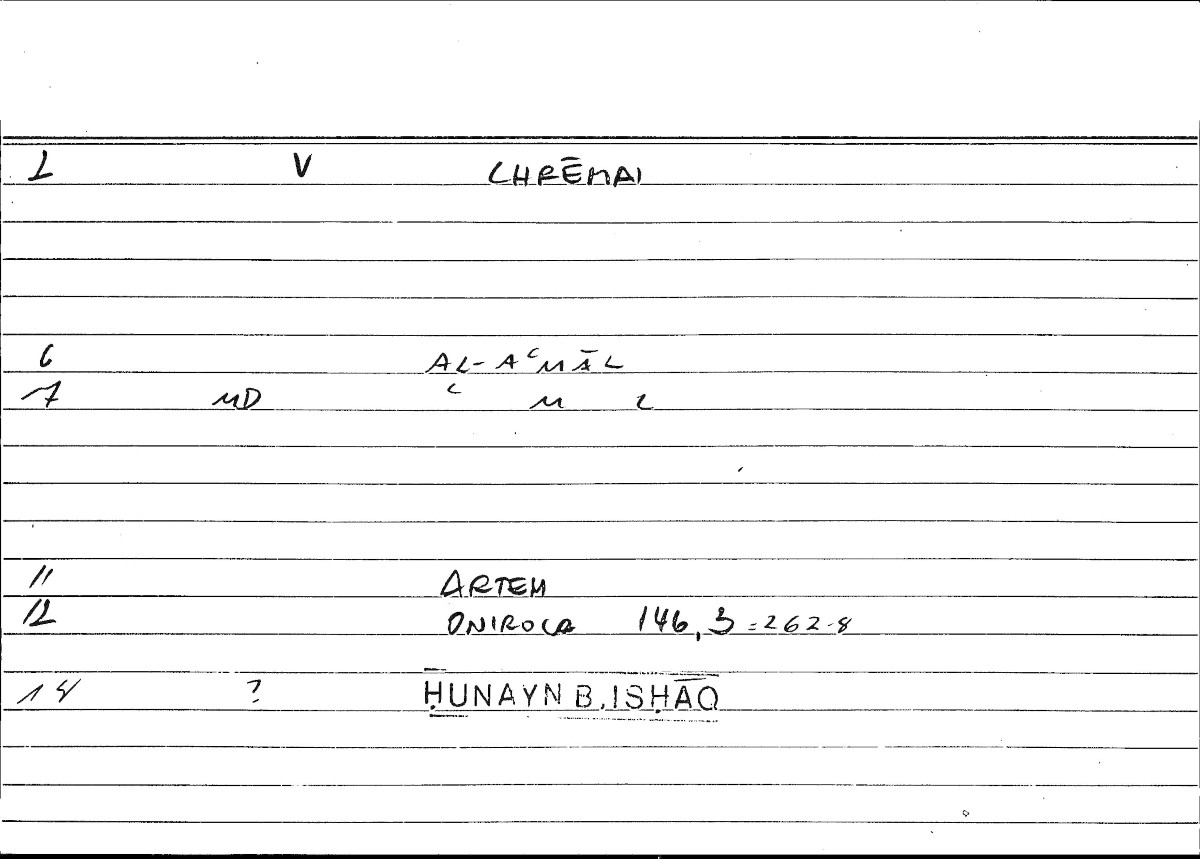 1 V CHRĒMAI
6 AL-AʿMĀL
7 MD ʿ M L
11 ARTEM
12 ONIROCR 146,3=262-8
14 ? ḤUNAYN B. ISḤĀQ